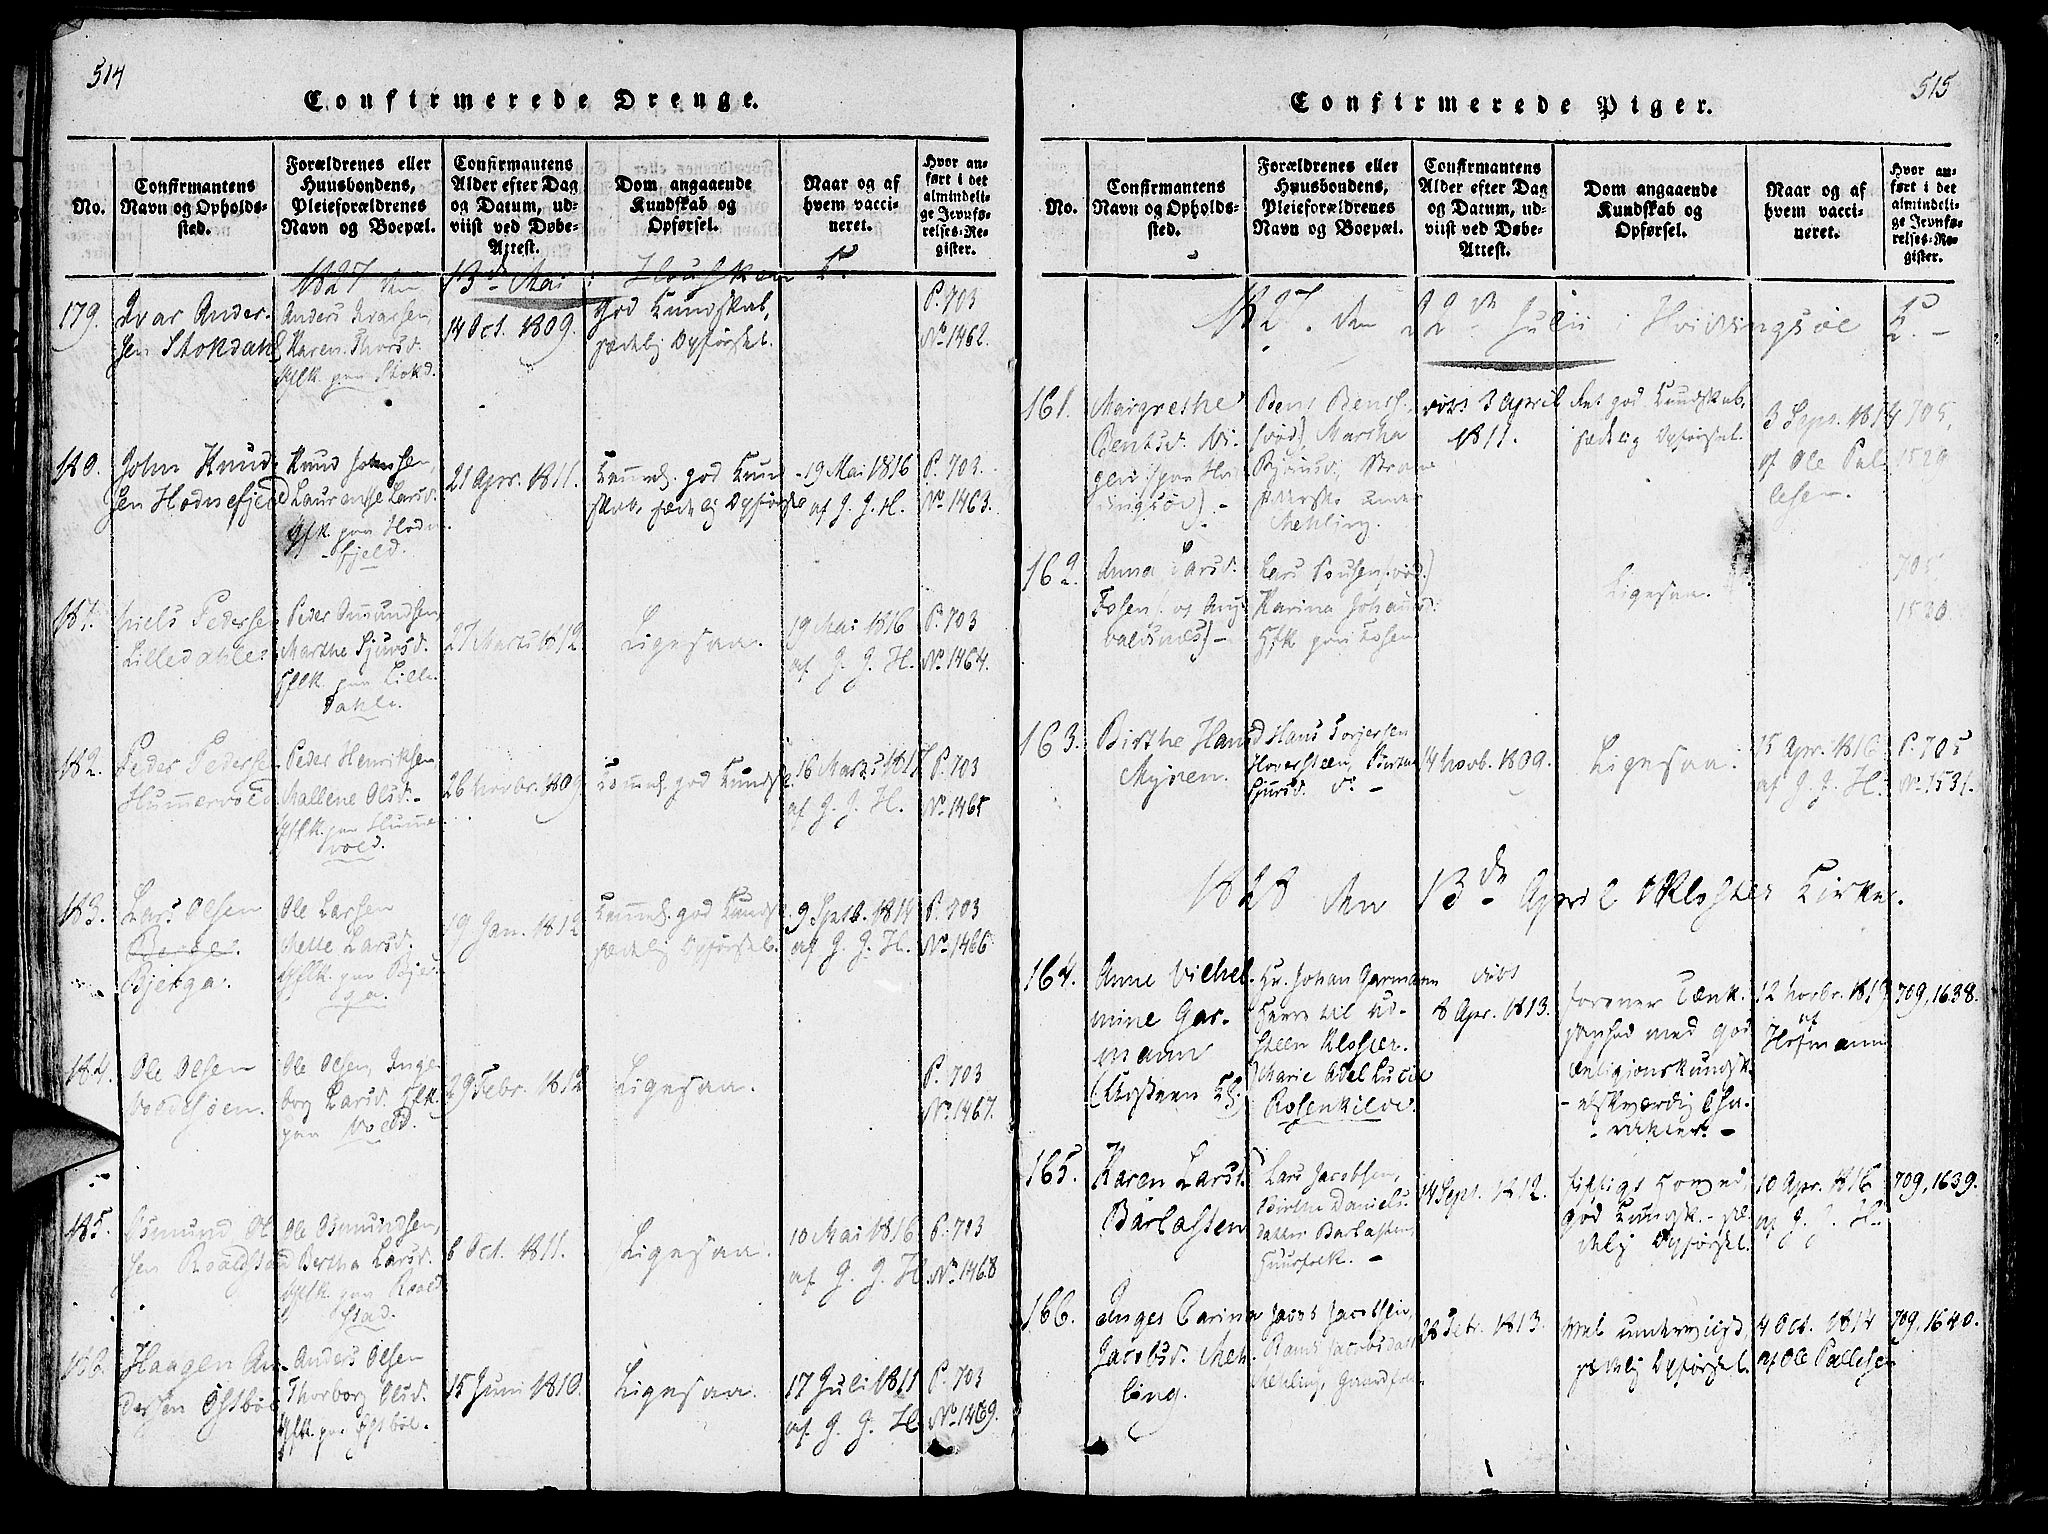 514
Confirmerede Drenge.
No.
Confirmantens
Navn og Opholds-
sted.
Forældrenes eller
Huusbondens,
Pleieforældrenes
Navn og Boepæl.
Confirmantens
Alder efter Dag
og Datum, ud-
viist ved Døbe-
Attest.
Dom angaaende
Kundskab og
Opførsel.
Naar og af
hvem vacci-
neret.
Hvor an-
ført i det
almindeli-
ge Jevnfø-
relses-Re-
gister.
1827 den 13de Mai i
179.
Ivar Ander-
sen Stokdahl
Anders Ivarsen,
Karen Thorsd.
paa Stokd.
14 Oct. 1809.
God Kundskab,
sædelig Opførsel.
P. 703
No 1462.
180.
John Knud-
sen Hodnefjeld
Knud Johnsen,
Laurentse Larsd.
Gflk. paa Hodne-
fjeld.
21 Apr. 1811.
god Kund-
skab, sædelig Opførsel
19 Mai 1816
af J. J. H.
P. 703.
No 1463.
181.
Niels Pedersen
Lilledahle
Peder Asmundsen,
Marthe Sjursd.
Gflk. paa Lille-
dahle.
27 Marts 1812
Ligesaa.
19 Mai 1816
af J. J. H.
P. 703
No 1464.
182.
Peder Pedersen
Hummervold
Peder Henriksen
Mallene Olsd.
Gflk. paa Humme-
vold.
26 Novbr. 1809
god Kundsk.
16 Marts 1817
af J. J. H.
P. 703
No 1465
183.
Lars Olsen
Bjerga.
Ole Larsen
Mette Larsd.
Gflk. paa Bjer-
ga.
19 Jan. 1812
god Kundsk.
sædelig Opførsel.
9 Sptb. 1814
af J. J. H.
P. 703
No 1466
184.
Ole Olsen
Ole Olsen, Inge-
borg Larsd. Flk.
paa Vold.
29 Febr. 1812
Ligesaa.
P. 703
No 1467.
185.
Osmund Ol-
sen Roaldstad
Ole Osmundsen,
Bertha Larsd.
Gflk. paa Roald-
stad.
6 Oct. 1811.
Ligesaa.
10 Mai 1816
af J. J. H.
P. 703
No 1468
186.
Haagen An-
dersen Østbøe
Anders Olsen
Thorborg Olsd.
Gflk. paa Østbøe.
15 Juni 1810.
Ligesaa.
17 Juli 1811
af J. J. H.
P. 703
No 1469.
515
Confirmerede Piger.
No.
Confirmantens
Navn og Opholds-
sted.
Forældrenes eller
Huusbondens,
Pleieforældrenes
Navn og Boepæl.
Confirmantens
Alder efter Dag
og Datum, ud-
viist ved Døbe-
Attest.
Dom angaaende
Kundskab og
Opførsel.
Naar og af
hvem vacci-
neret.
Hvor an-
ført i det
almindeli-
ge Jevnfø-
relses-Re-
gister.
1827. den 22de Julii i Hvidingsøe K.
161.
Margrethe
Bentsd. Vi-
gen (paa Hvi-
dingsøe)
Bent Bents.
(død), Martha
Mehling.
døbt 3 April
1811.
god Kundskab,
sædelig Opførsel.
3 Sept. 1814
af Ole Pal-
lesen.
705,
1529
162.
Anna Larsd.
Fosen (og Aug-
valdsnes)
Lars Poulsen (død)
Karina Johannsd.
Hflk. paa Fosen
Ligesaa.
705
1530
163.
Birthe Hansd
Myren.
Hans Torjersen
Sjursd. do
14 Novb. 1809.
Ligesaa.
15 Apr. 1816
af J. J. H.
P. 705
No 1531.
1828 den 13de April i Kloster Kirke.
164.
Anne Vilhel-
mine Gar-
mann
Hr. Johan Garmann
Herre til Ud-
steen Kloster.
Marie Adel Lucie
Rosenkilde.
døbt
8 Apr. 1813.
forener Tænk-
somhed med god
Religionskundsk.
elskværdig Cha-
rakter.
12 Novbr. 1815
af
Hofmann
709, 1638.
165.
Karen Larsd.
Bårlasten
Lars Jacobsen,
Birthe Daniels-
datter Barlasten,
Huusfolk.
14 Sept. 1812.
god Kundsk. sæ-
delig Opførsel.
10 Apr. 1816
af J. J. H.
709, 1639.
166.
Inger Carina
Jacobsd. Meh-
ling.
Jacob Jacobsen,
Jacobsdatt.
Mehling, Gaardfolk
28 Febr. 1813.
Vel underviist,
sædelig Opførsel.
4 Oct. 1814
af Ole Pallesen
709, 1640.